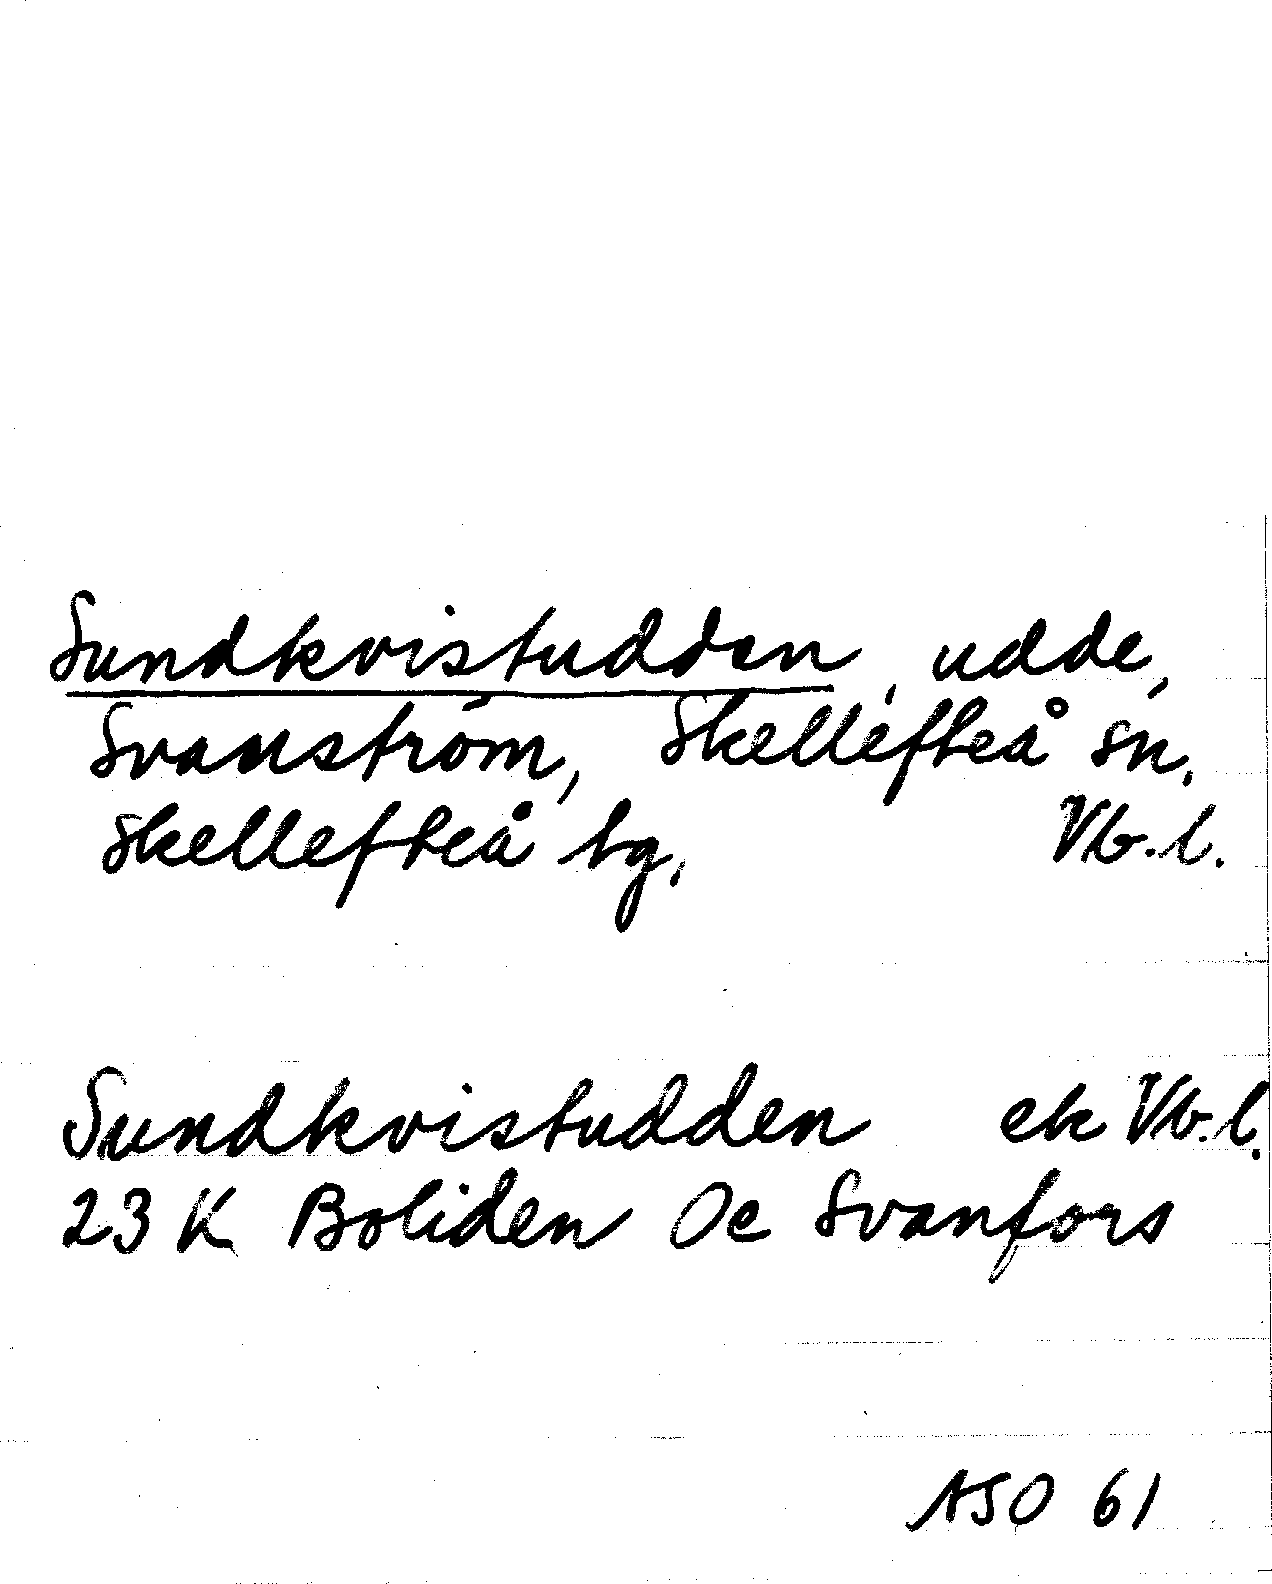 Sundkvistudden, udde,
Svanström, Skellefteå sn.
Skellefteå tg. Vb.l.
Sundkvistudden ek Vb.l.
23 K Boliden Oe Svanfors
ASO 61